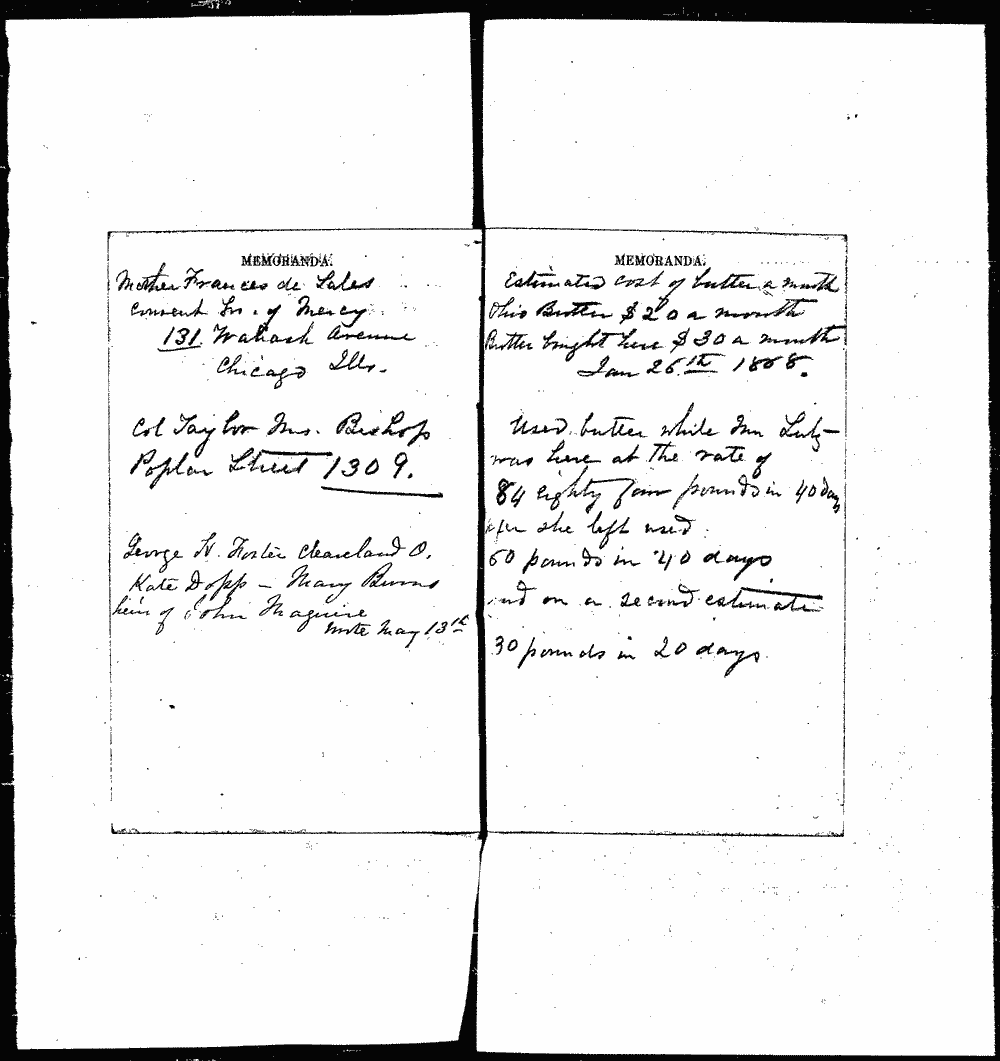 MEMORANDA.
Mother Frances de Sales
Convent Srs. of Mercy
131 Wabash Avenue
Chicago Ills.
Col Taylor Mrs. Bishop
Poplar Street 1309.
George H. Foster Cleaveland O.
Kate Dopp - Mary Burns
heir of John Maguire
wrote May 13th
MEMORANDA.
Estimated cost of butter a month
Ohio Butter $20 a month
Butter bought here $30 a month
Jan 26th 1868.
Used butter while Mrs Lutz
was here at the rate of
84 eighty four pounds in 40 days
after she left used
60 pounds in 40 days
and on a second estimate
30 pounds in 20 days